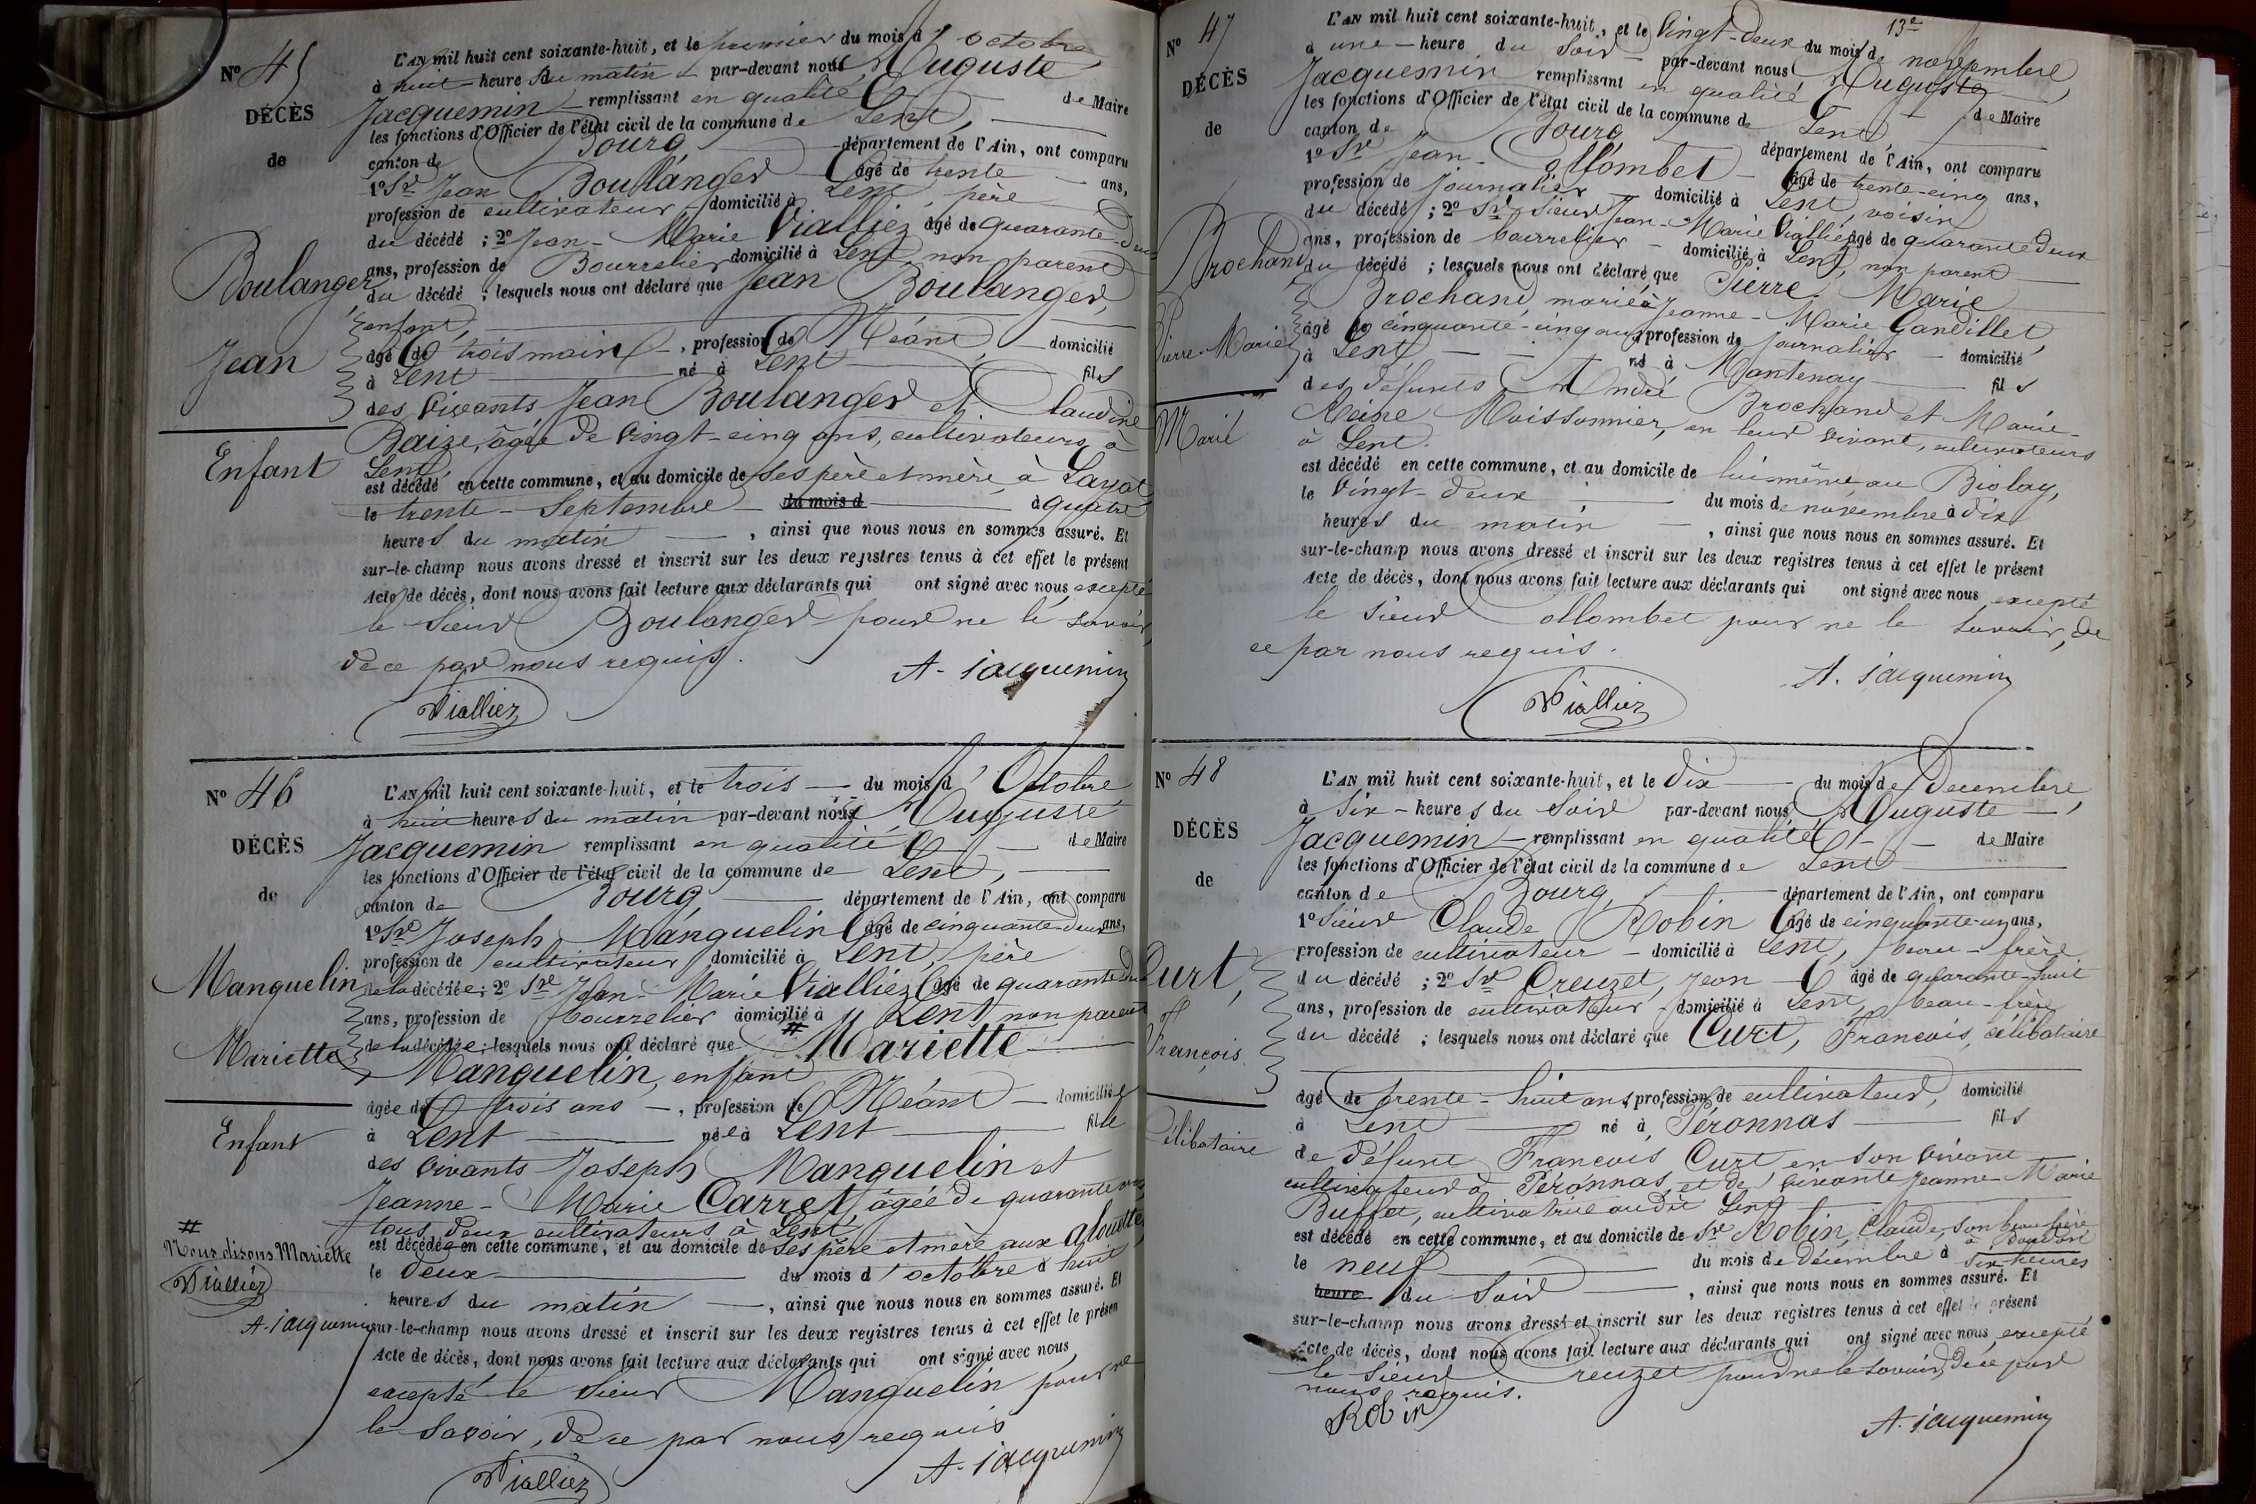 N° 45
DÉCÈS
de
Boulanger
Jean
Enfant
L'AN mil huit cent soixante-huit, et le premier du mois d'octobre
à huit heure du matin par-devant nous Auguste
Jacquemin remplissant en qualité de Maire
les fonctions d'Officier de l'état civil de la commune de Lent,
canton de Bourg département de l'Ain, ont comparu
1° Sr Jean Boulanger âgé de trente ans,
profession de cultivateur domicilié à Lent, père
du décédé ; 2° Jean-Marie Vialliez âgé de quarante-deux
ans, profession de Bourrelier domicilié à Lent, non parent
du décédé ; lesquels nous ont déclaré que Jean Boulanger,
enfant,
âgé de trois mois, profession de Néant, domicilié
à Lent né à Lent fils
des vivants Jean Boulanger et Claudine
Baize, âgée de vingt-cinq ans, cultivateurs, à
Lent,
est décédé en cette commune, et au domicile de ses père et mère, à
le trente-Septembre du mois d à quatre
heures du matin, ainsi que nous nous en sommes assuré. Et
sur-le-champ nous avons dressé et inscrit sur les deux registres tenus à cet effet le présent
Acte de décès, dont nous avons fait lecture aux déclarants qui ont signé avec nous excepté
le Sieur Boulanger pour ne le savoir,
de ce par nous requis.
A. Jacquemin
Vialliez
N° 46
DÉCÈS
de
Manquelin
Mariette
Enfant
#
Nous disons Mariette
Vialliez
A. Jacquemin
L'AN mil huit cent soixante-huit, et le trois du mois d'Octobre
à huit heures du matin par-devant nous Auguste
Jacquemin remplissant en qualité de Maire
les fonctions d'Officier de l'état civil de la commune de Lent,
canton de Bourg département de l'Ain, ont comparu
1° Sr Joseph Manquelin âgé de cinquante-deux ans,
profession de cultivateur domicilié à Lent, père
de la décédée ; 2° Sr Jean-Marie Vialliez âgé de quarante deux
ans, profession de bourrelier domicilié à Lent non parent
de la décédée ; lesquels nous ont déclaré que # Mariette
Manquelin, enfant
âgée de trois ans, profession de Néant domiciliée
à Lent née à Lent fille
des vivants Joseph Manquelin et
Jeanne-Marie Carret, âgée de quarante ans
tous deux cultivateurs à Lent,
est décédée en cette commune, et au domicile de ses père et mère aux alouettes,
le deux du mois d'octobre à huit
heures du matin, ainsi que nous nous en sommes assuré. Et
sur-le-champ nous avons dressé et inscrit sur les deux registres tenus à cet effet le présent
Acte de décès, dont nous avons fait lecture aux déclarants qui ont signé avec nous
excepté le Sieur Manquelin pour ne
le Savoir, de ce par nous requis
A. Jacquemin
Vialliez
13e
N° 47
DÉCÈS
de
Brochand
Pierre-Marie
Marié
L'AN mil huit cent soixante-huit, et le vingt-deux du mois de novembre
à une heure du Soir par-devant nous Auguste
Jacquemin remplissant en qualité de Maire
les fonctions d'Officier de l'état civil de la commune de Lent
canton de Bourg département de l'Ain, ont comparu
1° Sr Jean Collombet âgé de trente-cinq ans,
profession de Journalier domicilié à Lent, voisin
du décédé ; 2° Sr Sieur Jean-Marie Vialliez âgé de quarante deux
ans, profession de bourrelier domicilié à Lent, non parent
du décédé ; lesquels nous ont déclaré que Pierre Marie
Brochand, marié à Jeanne-Marie Gandillet,
âgé de cinquante-cinq ans profession de Journalier domicilié
à Lent né à Mantenay fils
des défunts André Brochand et Marie-
Reine Moissonnier, en leur vivant, cultivateurs
à Lent.
est décédé en cette commune, et au domicile de lui même, au Biolay,
le vingt-deux du mois de novembre à dix
heures du matin, ainsi que nous nous en sommes assuré. Et
sur-le-champ nous avons dressé et inscrit sur les deux registres tenus à cet effet le présent
Acte de décès, dont nous avons fait lecture aux déclarants qui ont signé avec nous excepté
le Sieur Collombet pour ne le Savoir, de
ce par nous requis.
A. Jacquemin
Vialliez
N° 48
DÉCÈS
de
Curt,
François
Célibataire
L'AN mil huit cent soixante-huit, et le dix du mois de Décembre
à Six heures du Soir par-devant nous Auguste
Jacquemin remplissant en qualité de Maire
les fonctions d'Officier de l'état civil de la commune de Lent
canton de Bourg, département de l'Ain, ont comparu
1° Sieur Claude Robin âgé de cinquante-un ans,
profession de cultivateur domicilié à Lent, beau-frère
du décédé ; 2° Sr Creuzet, Jean âgé de quarante-huit
ans, profession de cultivateur domicilié à Lent, beau-frère
du décédé ; lesquels nous ont déclaré que Curt, François, célibataire
âgé de trente-huit ans, profession de cultivateur, domicilié
à Lent né à Péronnas fils
de défunt François Curt en son vivant
cultivateur à Péronnas et de vivante Jeanne-Marie
Buffet, cultivatrice audit Lent
est décédé en cette commune, et au domicile de Sr Robin, Claude, son beau frère
le neuf du mois de Décembre à six heures
heure du Soir, ainsi que nous nous en sommes assuré. Et
sur-le-champ nous avons dressé et inscrit sur les deux registres tenus à cet effet le présent
Acte de décès, dont nous avons fait lecture aux déclarants qui ont signé avec nous, excepté
le Sieur Creuzet pour ne le savoir, de ce par
nous requis.
Robin
A. Jacquemin